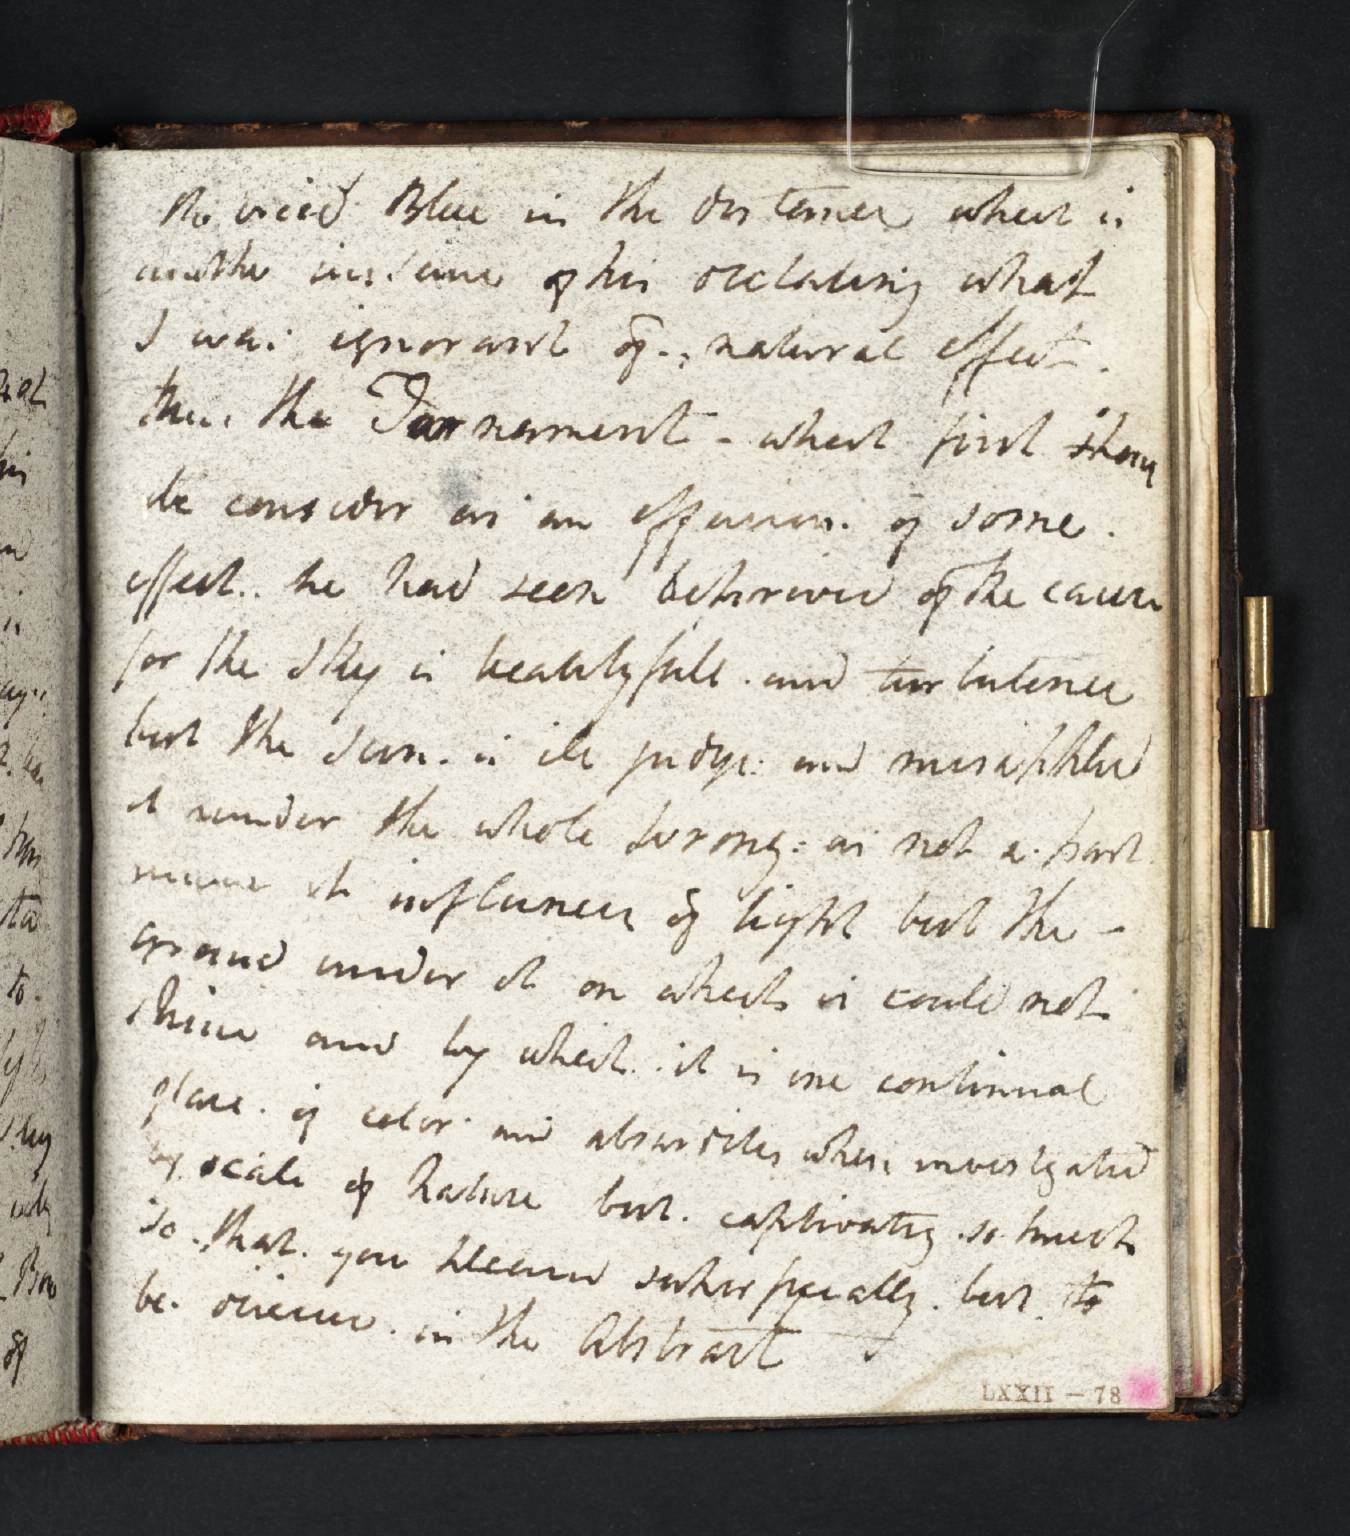 the vivid Blue in the distance which is
another instance of his declaring what
I was ignorant of.: natural effect.
thus the Tournament - which first should
be consider as an effusion. of some.
effect. he had seen deprived of the cause
for the Sky is beautyfull. and turbulence
but the Sun. is ill judge: and misapplied
it render the whole wrong: as not a part
it influence of light but the -
ground under it on which is could not
shine and by which. it is one continual
glare. of color. and absurdities when investigated
by scale of Nature but. captivating so much
so. that. you superficially. but to
be. in the Abstract
LXXII - 78
to.
Bon
of